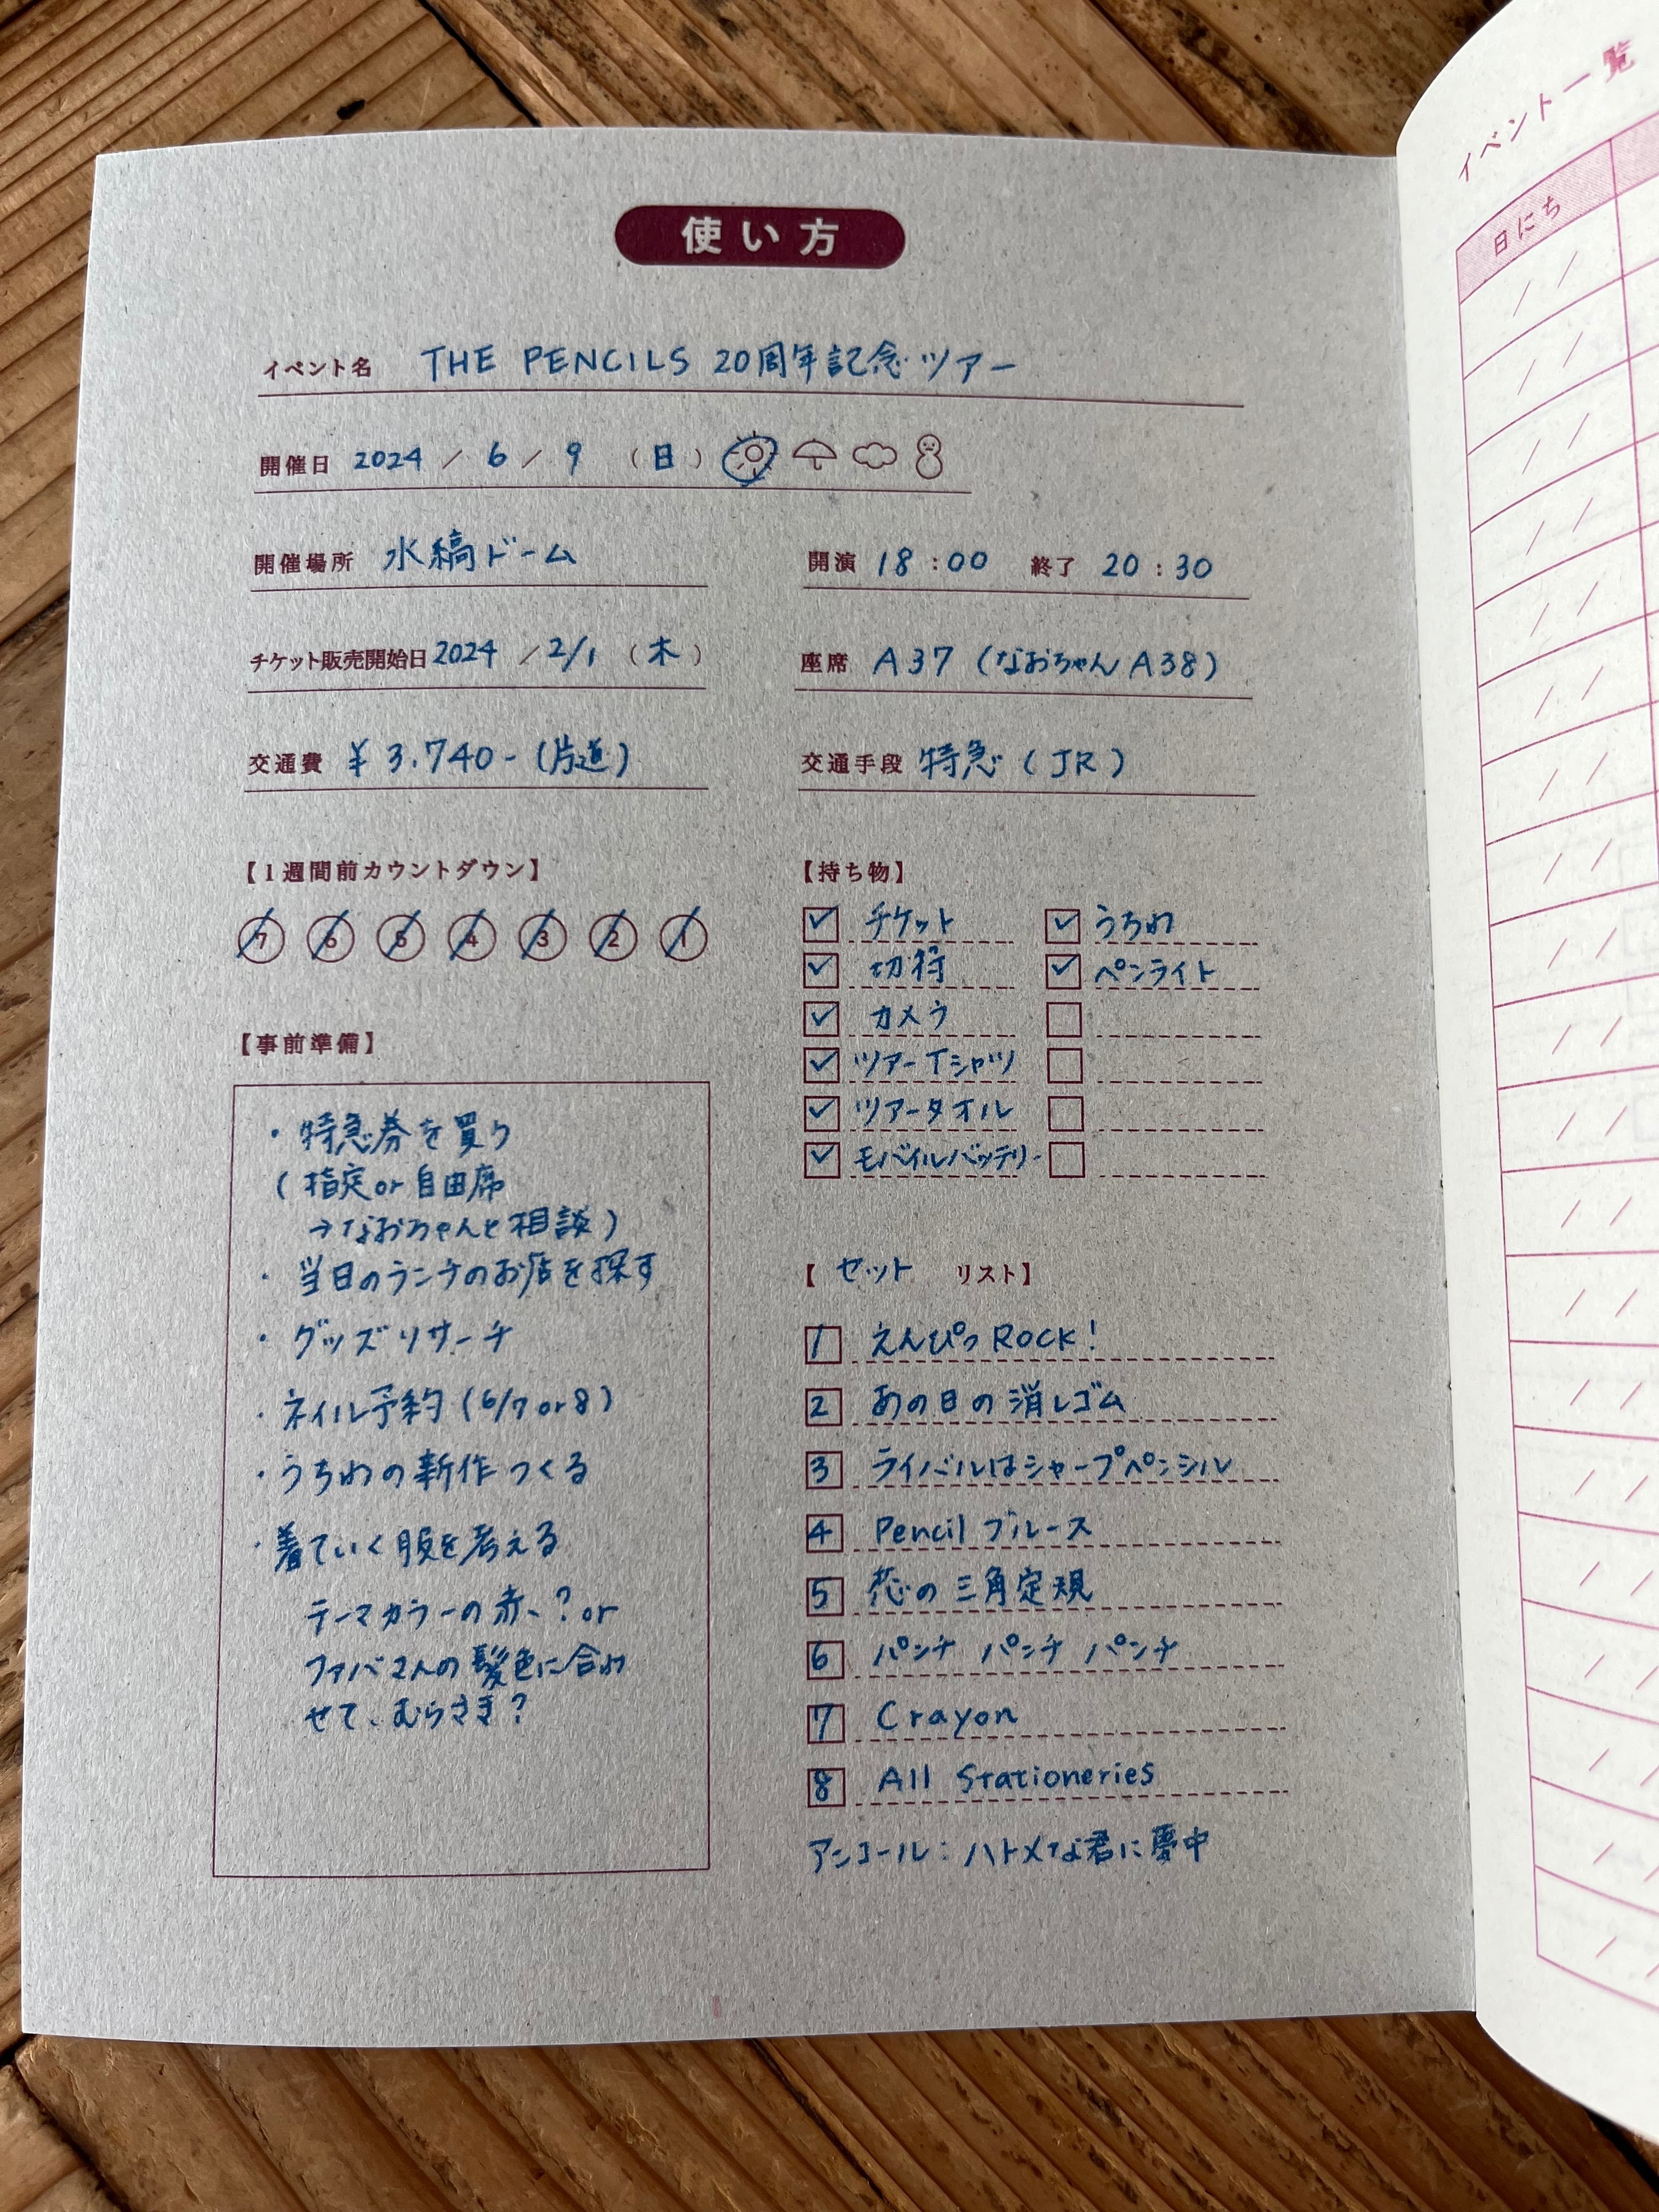 使い方
イベント名 THE PENCILS 20周年記念ツアー
開催日 2024 / 6 / 9 (日)
開催場所 水縞ドーム
開演 18:00 終了 20:30
チケット販売開始日 2024 / 2/1 (木)
座席 A37 (なおちゃん A38)
交通費 ¥3.740- (片道)
交通手段 特急 (JR)
【1週間前カウントダウン】
7 6 5 4 3 2 1
【事前準備】
・特急券を買う
(指定or自由席
→なおちゃんと相談)
・当日のランチのお店を探す
・グッズリサーチ
・ネイル予約 (6/7 or 8)
・うちわの新作つくる
・着ていく服を考える
テーマカラーの赤、? or
ファバさんの髪色に合わ
せて、むらさき?
【持ち物】
チケット うちわ
切符 ペンライト
カメラ
ツアーTシャツ
ツアータオル
モバイルバッテリー
【セット リスト】
1 えんぴつROCK!
2 あの日の消しゴム
3 ライバルはシャープペンシル
4 Pencil ブルース
5 恋の三角定規
6 パンチ パンチ パンチ
7 Crayon
8 All Stationeries
アンコール: ハトメな君に夢中
イベント一覧
日にち